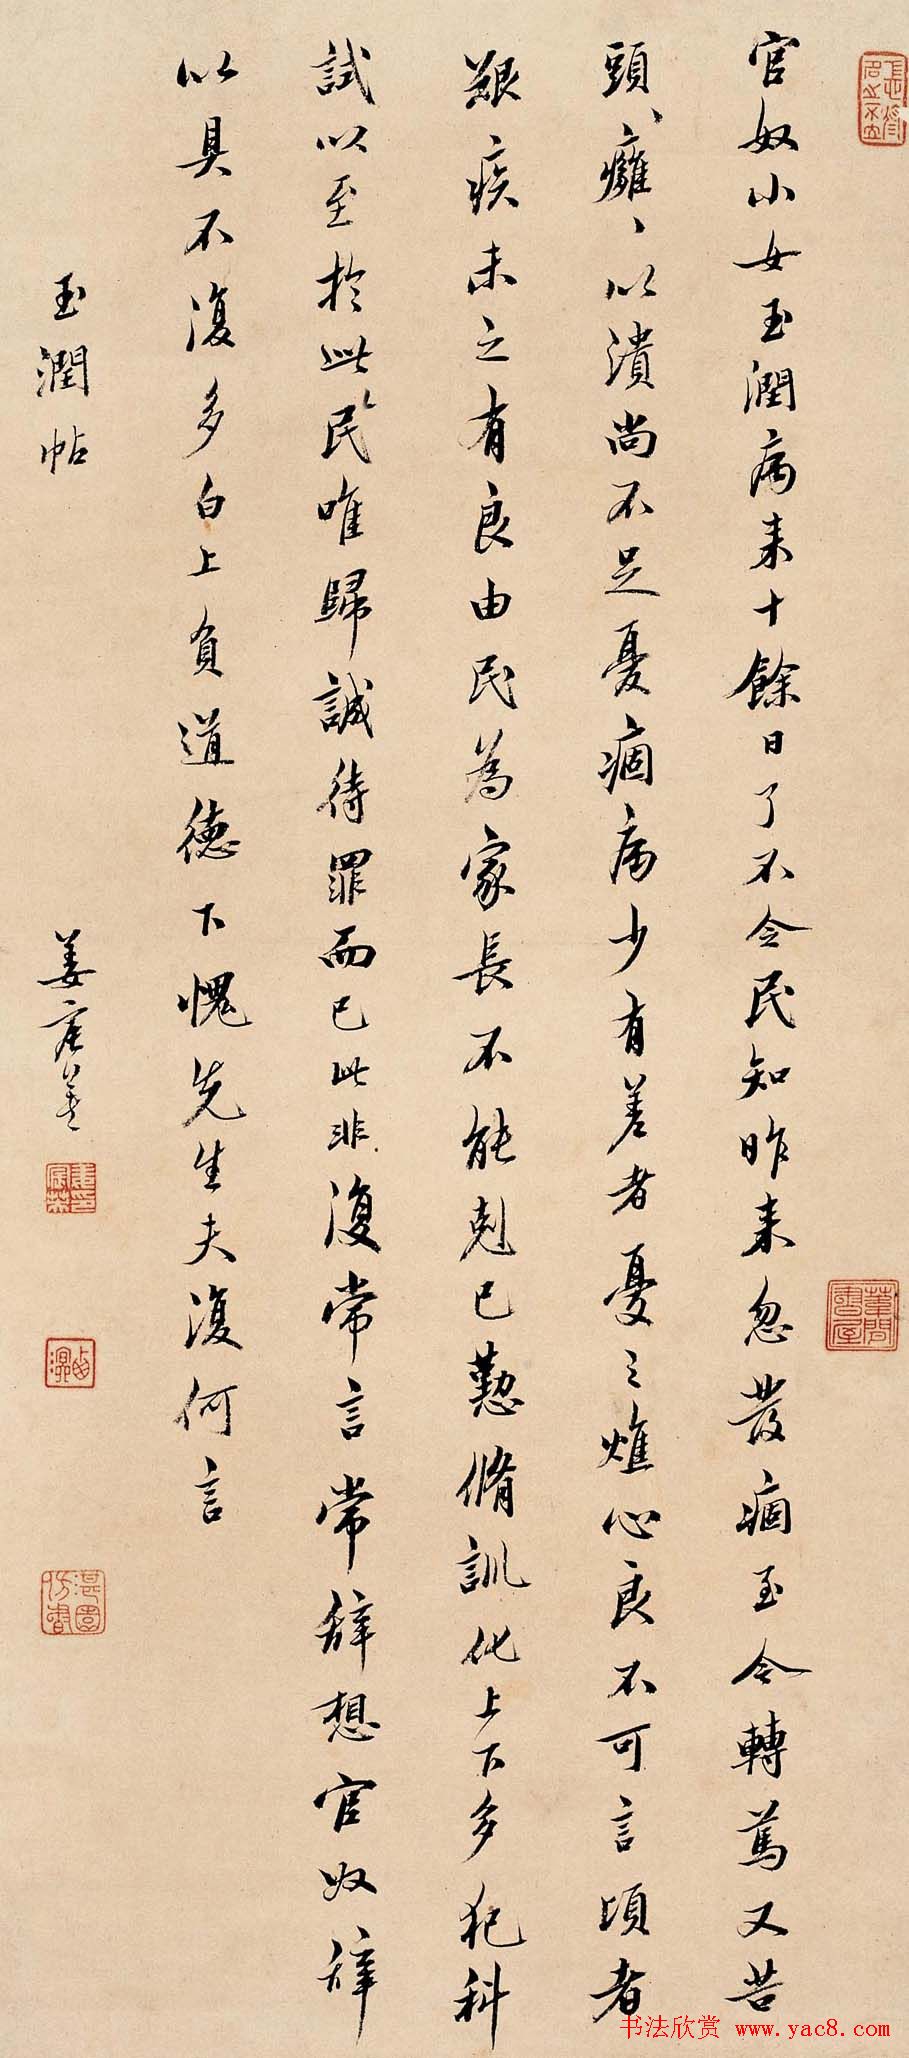 官奴小女玉潤病来十餘日了不令民知昨来忽發痼至今轉篤又苦
頭、癰、以潰尚不足憂痼病少有差者憂之燋心良不可言頃者
艱疾未之有良由民為家長不能剋己懃脩訓化上下多犯科
試以至於此民唯歸誠待罪而已此非復常言常辞想官奴辞
以具不復多白上負道德下愧先生夫復何言
玉潤帖
姜宸英
书法欣赏 www.yac8.com